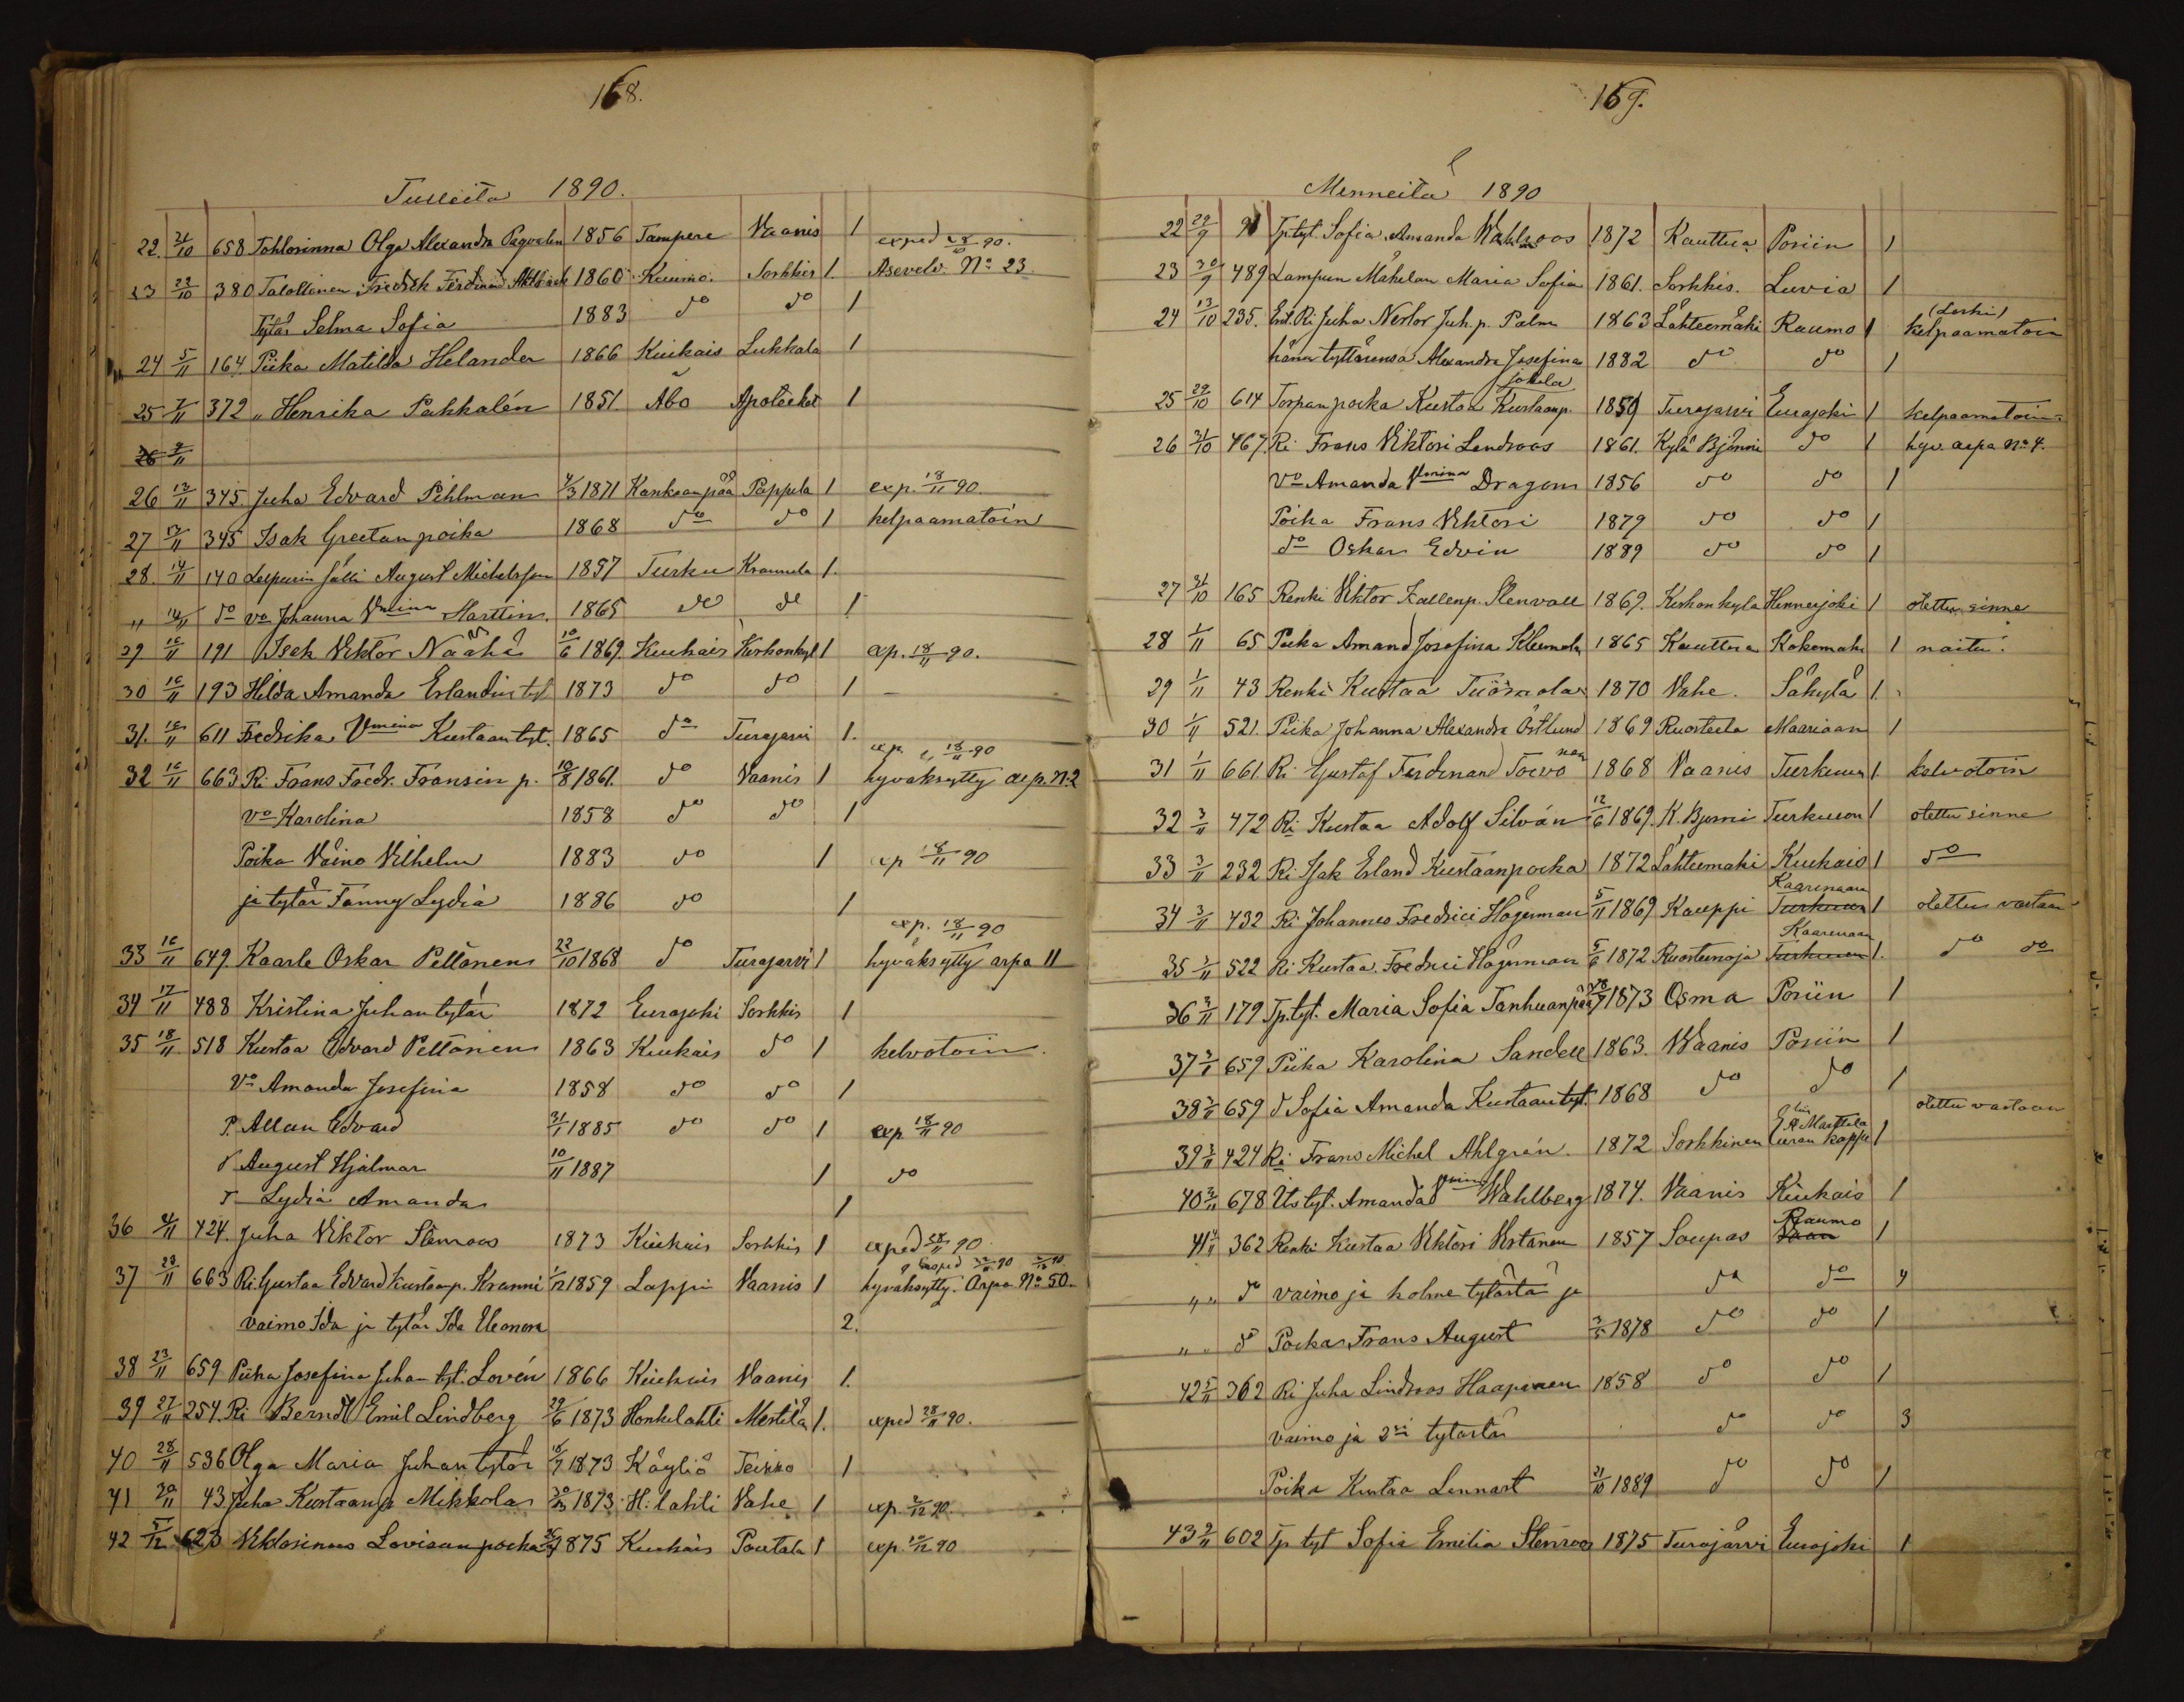 168.
Tulleita 1890.
22. 21/10 658 Olga Alexandra 1856 Tampere Vaanis 1
exped 28/10 90.
23 22/10 380 Talollinen Fredrik Ferdinand 1860 Sorkkis 1. Asevelv. No 23.
Tytär Selma Sofia 1883 do do 1
24 5/11 164 Piika Matilda Helander 1866 Kiukais Lukkala 1
25 7/11 372 " Henrika Pakkalén 1851 Åbo Apoteeket 1
26 13/11 345 Juha Edvard Pihlman 4/3 1871 Kankaanpää Pappila 1 exp. 18/11 90.
27 13/11 345 Isak Greetanpoika 1868 do do 1 kelpaamatoin
28. 14/11 140 August Michelsson 1857 Turku Kraunula 1.
" 14/11 do vo Johanna Vmina Marttin. 1865 do do 1
29 16/11 191 Isak Viktor 10/6 1869. Kiukais 1 exp. 18/11 90.
30 16/11 193 Hilda Amanda Erlandintyt. 1873 do do 1
31. 16/11 611 Fredrika Vmina Kustaantyt. 1865 do Turajarvi 1.
exp. 18/11 90
32 16/11 663 Ri Frans Fredr. Fransin p. 10/8 1861. do Vaanis 1 hyväksytty arp. N.2
vo Karolina 1858 do do 1
Poika Väino Vilhelm 1883 do 1 exp 18/11 90
ja tytär Fanny Lydia 1886 do 1
exp. 18/11 90
33 16/11 649. Kaarle Oskar Peltonen 22/10 1868 do Turajarvi 1 hyväksytty arpa 11
34 17/11 488 Kristina Juhantytär 1872 Eurajoki Sorkkis 1
35 18/11 518 Kustaa Edvard Peltonen 1863 Kiukais do 1 kelvotoin.
Vo Amanda Josefina 1858 do do 1
P. Allan Edvard 31/1 1885 do do 1 exp 18/11 90
d August Hjalmar 10/11 1887 1 do
T Lydia Amanda 1
36 21/11 424. Juha Viktor Stenroos 1873 Kiukais Sorkkis 1 exped 28/11 90.
37 23/11 663 Ri. Gustaa Edvard Kustaanp. Kranni 1/12 1859 Lappi Vaanis 1 hyväksytty. Arpa No 50.
vaimo Ida ja tytär Ida Eleonora 2.
38 23/11 659 Piika Josefina Juhantyt. Lovén 1866 Kiukais Vaanis 1.
39 27/11 254. Ri Berndt Emil Lindberg 29/6 1873 Honkilahti Mestilä 1. exped 28/11 90.
40 28/11 536 Olga Maria Juhantytär 18/7 1873 Köyliö 1
41 30/11 43 Juha Kustaanp Mikkola 1873 H: lahti Vahe 1 exp. 5/12 90
42 5/12 623 Loviisanpoika 1875 Kiukais Poutala 1 exp. 90
169.
Menneitä 1890
22 29/9 91 Tptyt. Sofia Amanda Wahlroos 1872 Kauttua Poriin 1
23 30/9 489 Lampun Mäkelan Maria Sofia 1861. Sorkkis. Luvia 1
24 13/10 235. Ent. Ri Juha Nestor Juh. p. Palm 1863 Lähteemäki Raumo 1 (Leski) kelpaamatoin
hänen tyttärensä Alexandra Josefina 1882 do do 1
25 29/10 614 Torpanpoika Kustaa Kustaanp. Jokela 1859 Turajarvi Eurajoki 1 kelpaamatoin
26 31/10 467. Ri Frans Viktori Lendroos 1861. Kylä Björni do 1 hyv. arpa No 4.
Vo Amanda Vmina Dragon 1856 do do 1
Poika Frans Viktori 1879 do do 1
do Oskar Edvin 1889 do do 1
27 31/10 165 Renki Viktor Kallenp. Stenvall 1869. Kirkonkyla Hinnerjoki 1 otettu sinne
28 1/11 65 Piika Amanda Josefina Kleemola 1865 Kauttua Kokemäki 1 naitu.
29 1/11 43 Renki Kustaa 1870 Vahe. Säkylä 1.
30 1/11 521. Piika Johanna Alexandra Östlund 1869 Ruosteela Maariaan 1
31 1/11 661. Ri Gustaf Ferdinand Toivonen 1868 Vaanis Turkuun 1. kelvotoin
32 3/11 472 Ri Kustaa Adolf Silván 12/6 1869. K. Bjorni Turkuun 1 otettu sinne
33 3/11 232 Ri Isak Erland Kustaanpoika 1872 Lähteemäki Kiukais 1 do
34 3/11 432 Ri Johannes Fredrici Högerman 5/11 1869 Kauppi Turkuun Kaarinaan 1 otettu vastaan
35 3/11 522 Ri Kustaa Fredrici Högerman 5/6 1872 Ruostenoja Turkuun Kaarinaan 1. do do
36 3/11 179 Tp.tyt. Maria Sofia Tanhuanpää 1873 Osma Poriin 1
37 3/11 659 Piika Karolina Sandell 1863. Waanis Poriin 1
38 3/11 659 d Sofia Amanda Kustaantyt. 1868 do do 1
39 3/11 424 Ri Frans Michel Ahlgrén. 1872 Sorkkinen Euran kappe 1 otettu vastaan
40 3/11 678 Its tyt. Amanda Vmina Wahlberg 1874. Vaanis Kiukais 1
41 4/11 362 Renki Kustaa Viktori Vistanen 1857 Soupas Raumo 1
" " do vaimo ja kolme tytärtä ja do do 4
" " do Poika Frans August 1878 do do 1
42 5/11 362 Ri Juha Lindroos Haapanen 1858 do do 1
vaimo ja 2si tytärtä do do 3
Poika Kustaa Lennart 31/10 1889 do do 1
43 9/11 602 Tp tyt Sofia Emilia Stenroos 1875 Turajärvi Eurajoki 1